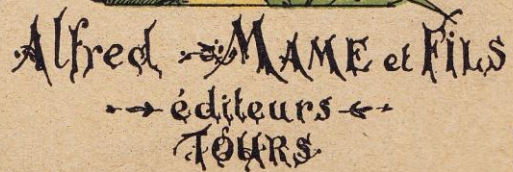 Alfred MAME et FILS
éditeurs
TOURS